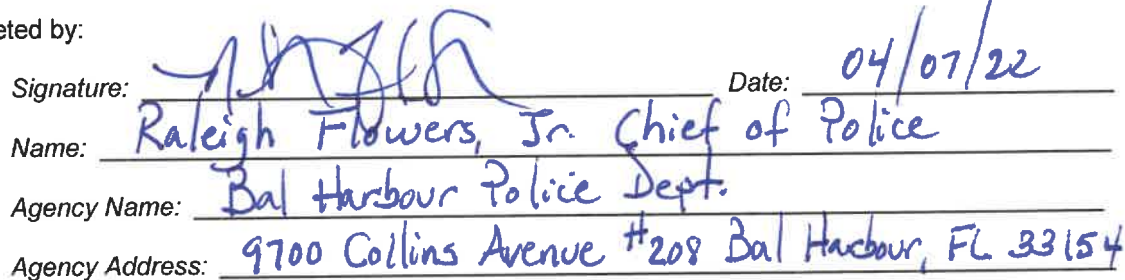 eted by:
Signature: Date: 04/07/22
Name: Raleigh Flowers, Jr. Chief of Police
Agency Name: Bal Harbour Police Dept.
Agency Address: 9700 Collins Avenue #208 Bal Harbour, FL 33154